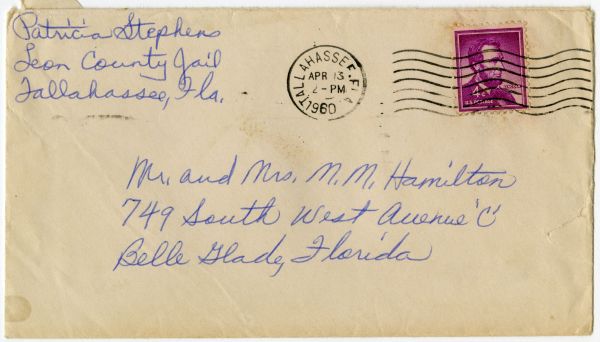 Patricia Stephens
Leon County Jail
Tallahassee, Fla.
TALLAHASSEE, FLA.
APR 13
2-PM
1960
4¢
Mr. and Mrs. M. M. Hamilton
749 South West Avenue 'C'
Belle Glade, Florida